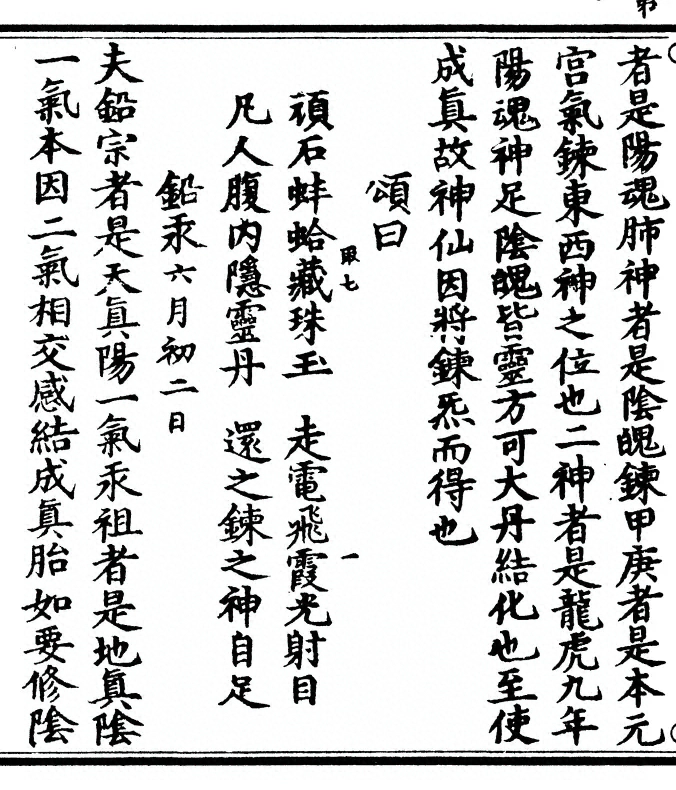 者是陽魂肺神者是陰魄鍊甲庚者是本元
宮氣鍊東西神之位也二神者是龍虎九年
陽魂神足陰魄皆靈方可大丹結化也至使
成眞故神仙因將鍊炁而得也
頌曰
頑石蚌蛤藏珠玉　走電飛霞光射目
凡人腹內隱靈丹　還之鍊之神自足
鉛汞六月初二日
夫鉛宗者是天眞陽一氣汞祖者是地眞陰
一氣本因二氣相交感結成眞胎如要修陰